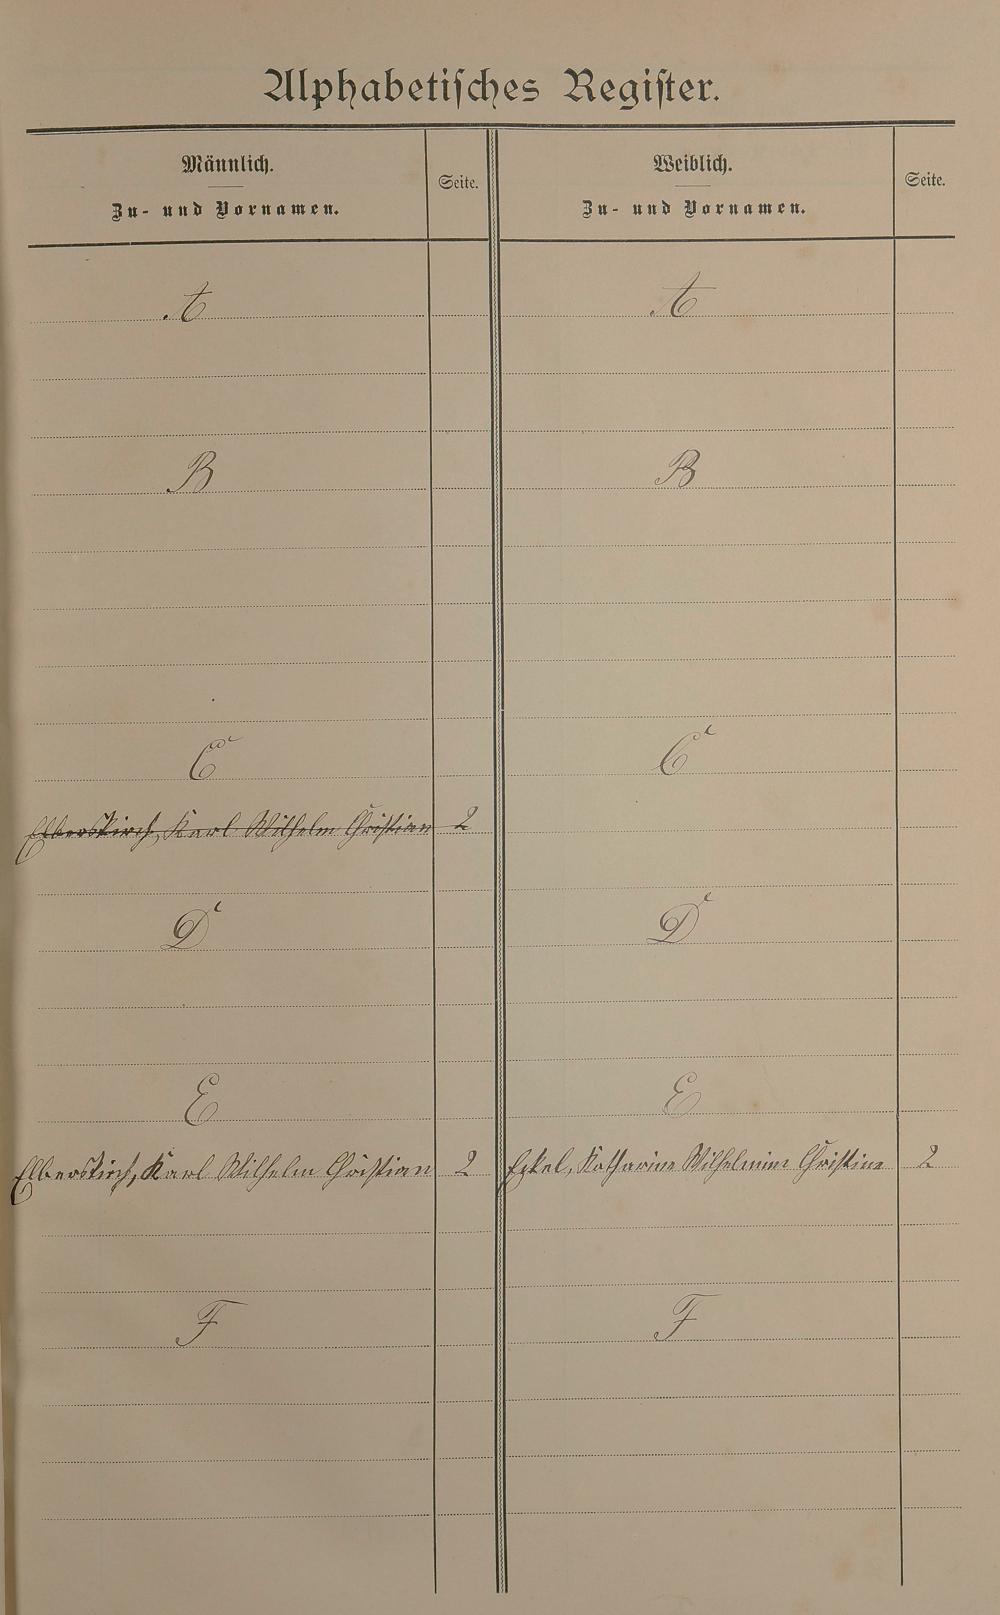 Alphabetisches Register.
Männlich.
Zu- und Vornamen.
Seite.
Weiblich.
Zu- und Vornamen.
Seite.
A
A
B
B
C
C
Elberskirch, Karl Wilhelm Christian 2
D
D
E
E
Elberskirch, Karl Wilhelm Christian 2
Katharine Wilhelmine Christine 2
F
F